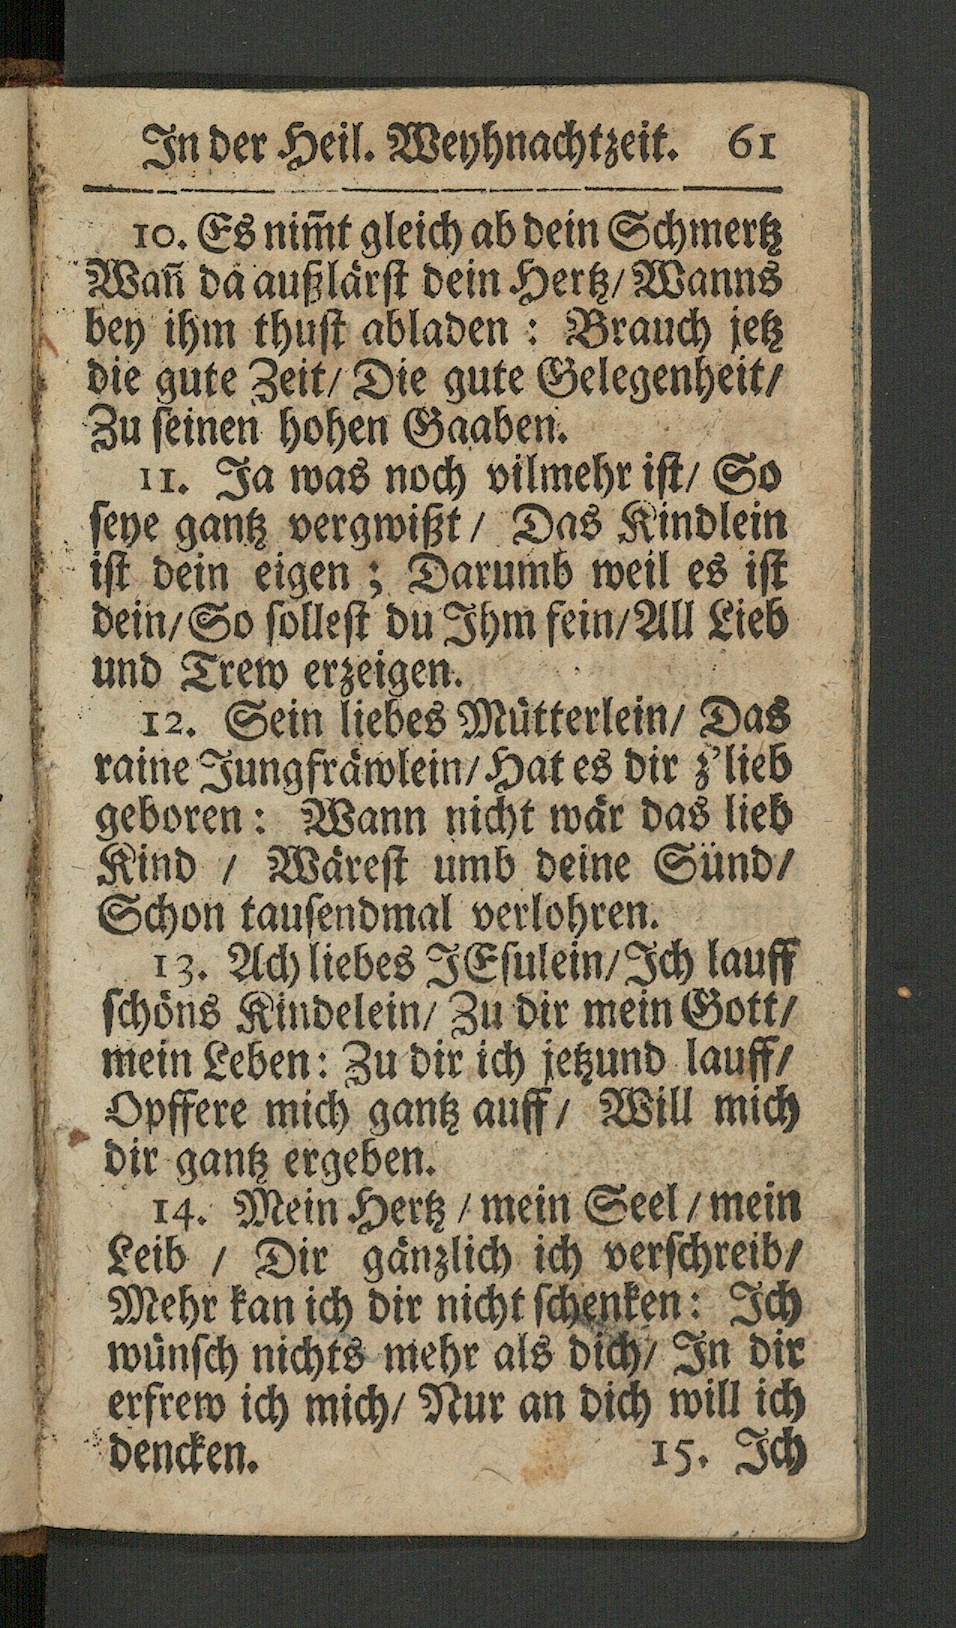 In der Heil. Weyhnachtzeit. 61
10. Es nim̃t gleich ab dein Schmertz
Wañ da außlärst dein Hertz/ Wanns
bey ihm thust abladen : Brauch jetz
die gute Zeit/ Die gute Gelegenheit/
Zu seinen hohen Gaaben.
11. Ja was noch vilmehr ist/ So
seye gantz vergwißt/ Das Kindlein
ist dein eigen ; Darumb weil es ist
dein/ So sollest du Ihm fein/ All Lieb
und Trew erzeigen.
12. Sein liebes Mütterlein/ Das
raine Jungfräwlein/ Hat es dir z'lieb
geboren : Wann nicht wär das lieb
Kind / Wärest umb deine Sünd/
Schon tausendmal verlohren.
13. Ach liebes JEsulein/ Ich lauff
schöns Kindelein/ Zu dir mein Gott/
mein Leben : Zu dir ich jetzund lauff/
Opffere mich gantz auff/ Will mich
dir gantz ergeben.
14. Mein Hertz / mein Seel / mein
Leib / Dir gänzlich ich verschreib/
Mehr kan ich dir nicht schenken : Ich
wünsch nichts mehr als dich/ In dir
erfrew ich mich/ Nur an dich will ich
dencken. 15. Ich